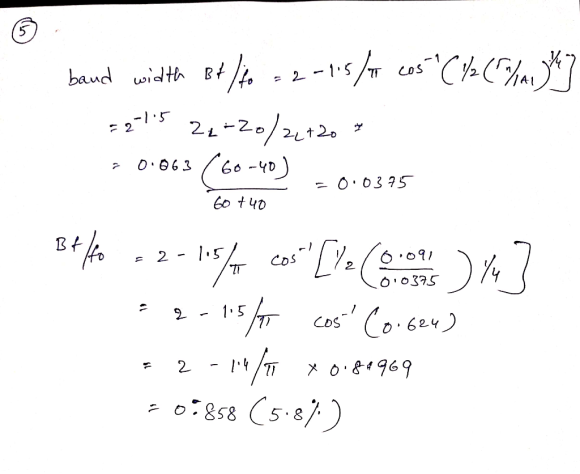 5
band width Bf/fo = 2 - 1.5/π cos⁻¹ (1/2 (Γn/|A|)^1/4]
= 2^-1.5 ZL-Zo/ZL+Zo
= 0.063 (60-40)/60+40 = 0.0375
Bf/fo = 2 - 1.5/π cos⁻¹ [1/2 (0.091/0.0375) 1/4]
= 2 - 1.5/π cos⁻¹ (0.624)
= 2 - 1.4/π × 0.89969
= 0.858 (5.8%)